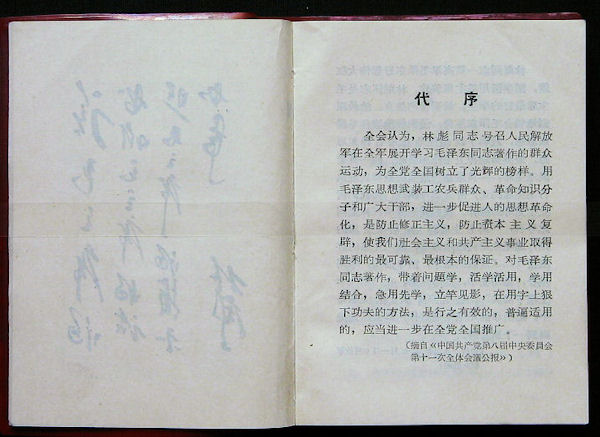 代 序
全会认为，林彪同志号召人民解放
军在全军展开学习毛泽东同志著作的群众
运动，为全党全国树立了光辉的榜样。用
毛泽东思想武装工农兵群众、革命知识分
子和广大干部，进一步促进人的思想革命
化，是防止修正主义，防止资本主义复
辟，使我们社会主义和共产主义事业取得
胜利的最可靠、最根本的保证。对毛泽东
同志著作，带着问题学，活学活用，学用
结合，急用先学，立竿见影，在用字上狠
下功夫的方法，是行之有效的，普遍适用
的，应当进一步在全党全国推广。
（摘自《中国共产党第八届中央委员会
第十一次全体会议公报》）